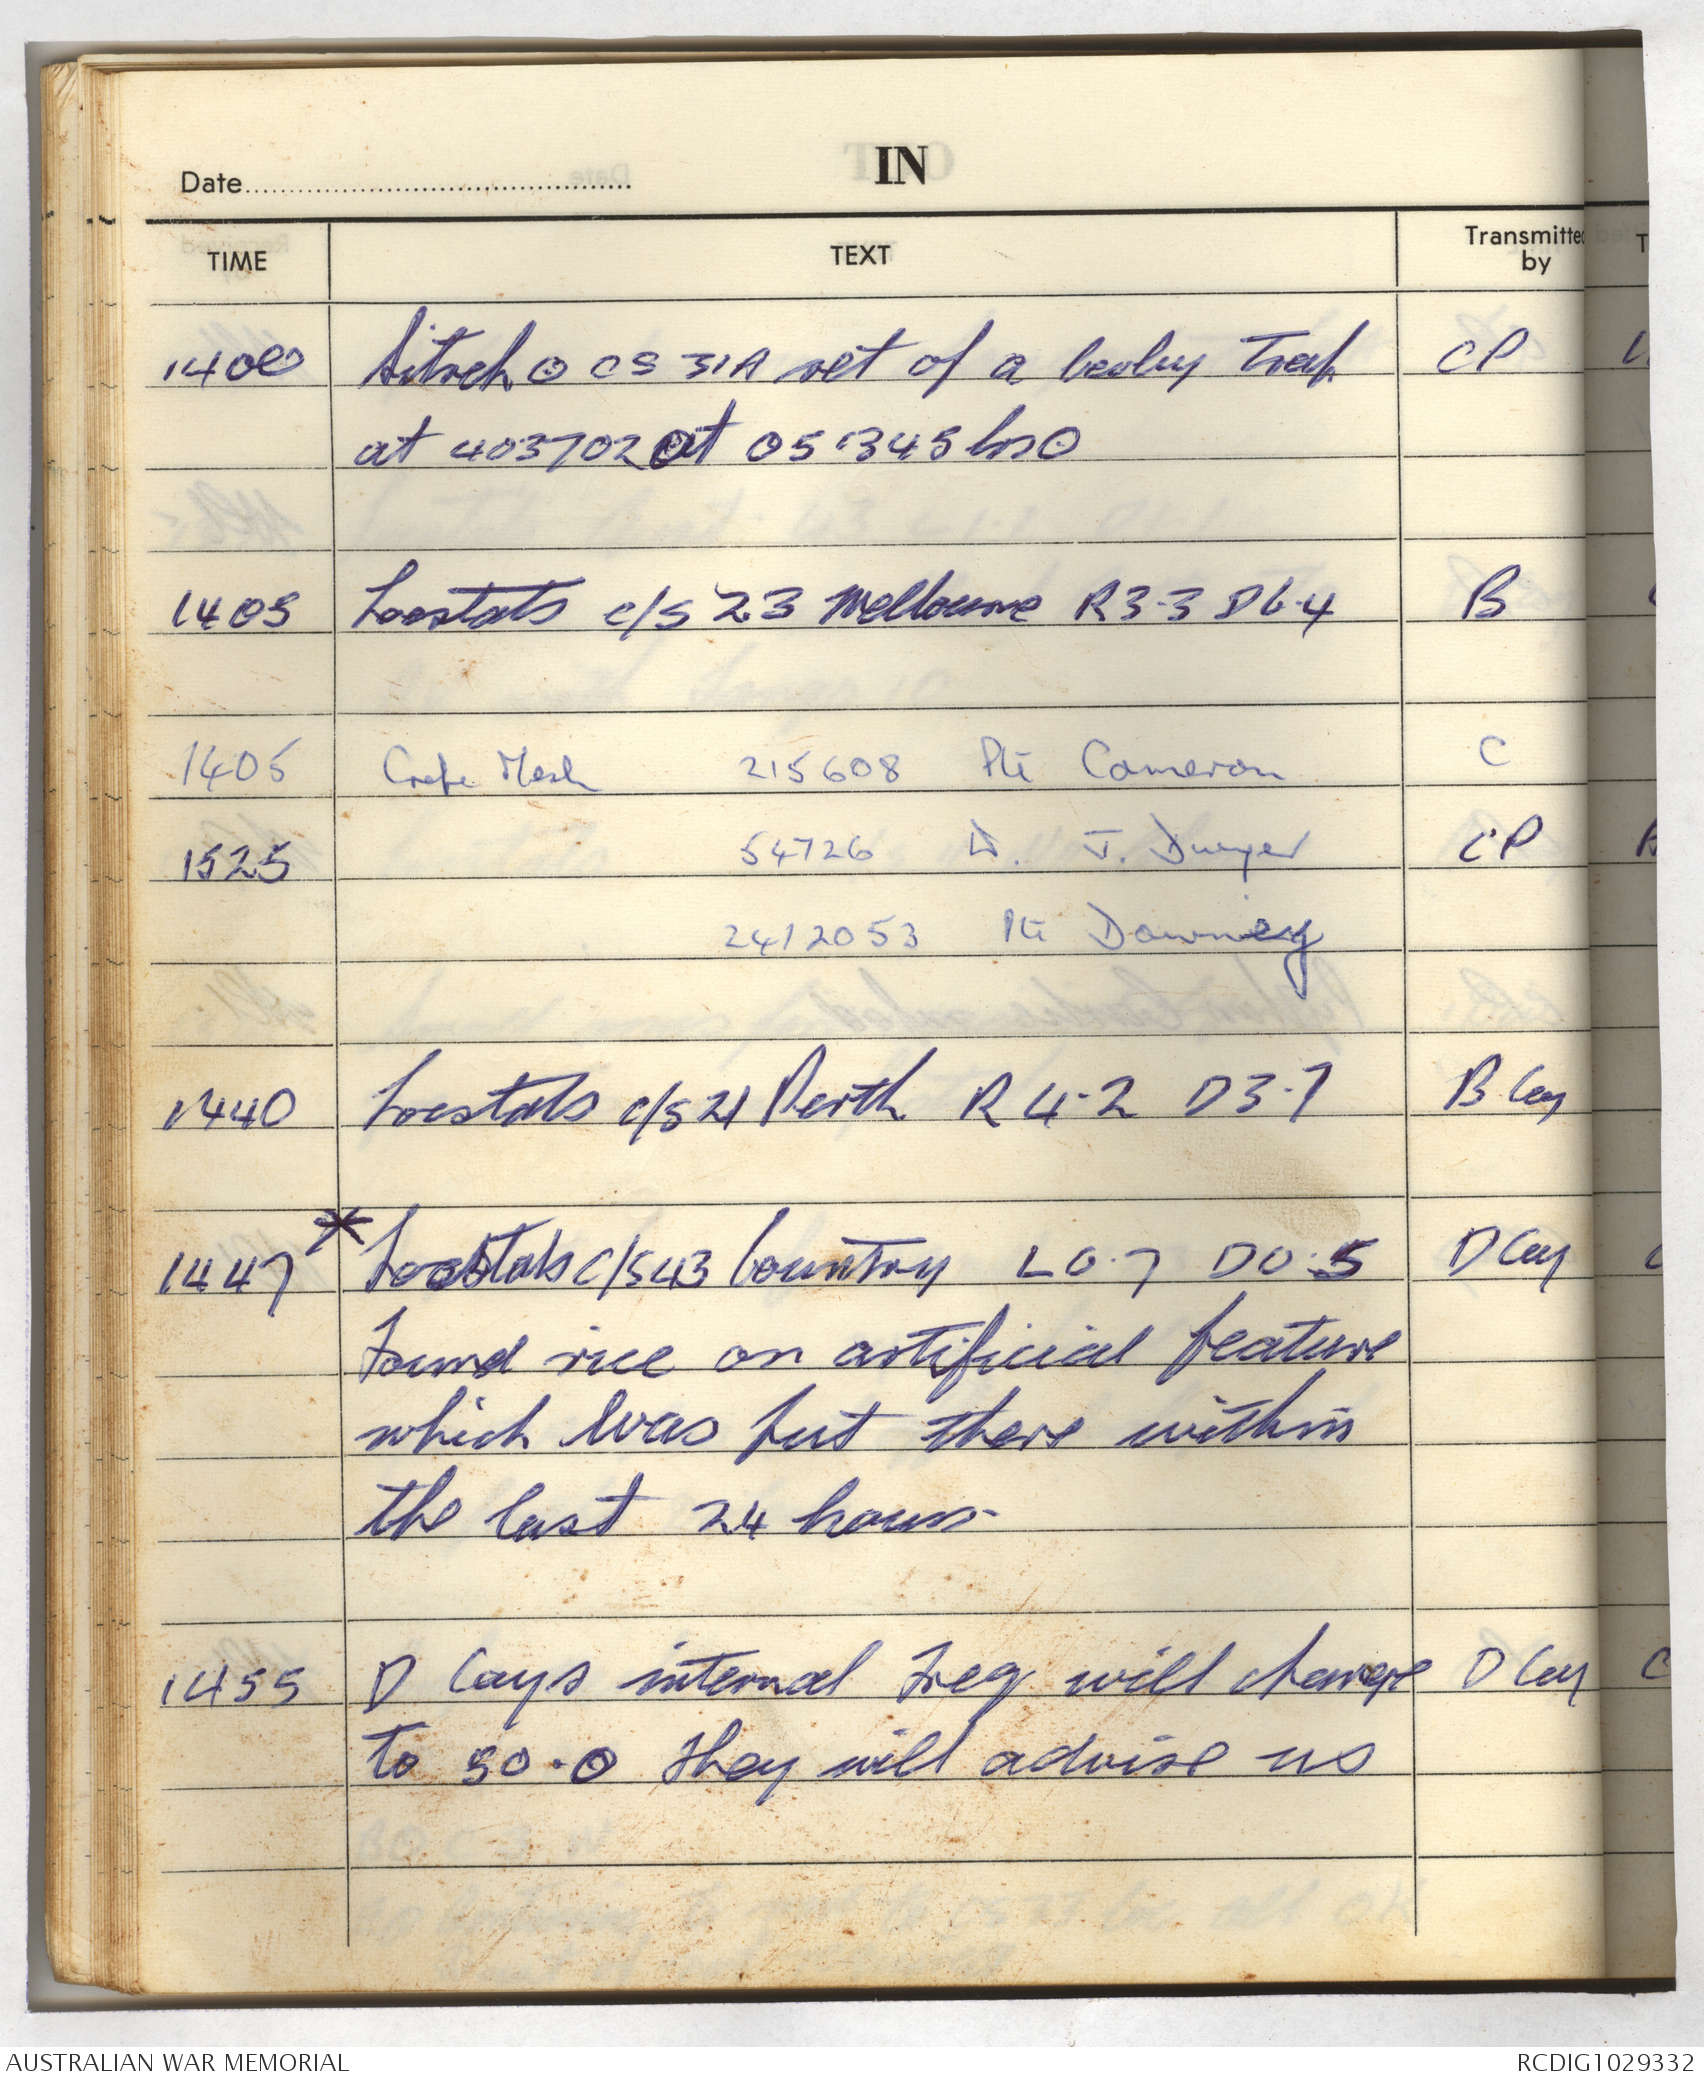 IN
Date
TIME TEXT Transmitted by
1400 Sitreh ⊙ CS 31A set of a booby trap CP
at 403702 at 051345 hrs ⊙
1405 Locstats c/s 23 Melbourne R3.3 D6.4 B
1405 Crefe Mesh 215608 Pte Cameron C
1525 54726 J. Dwyer CP
2412053 Pte Downey
1440 Locstats c/s 21 Perth R 4.2 D3.7 B Coy
1447 * Locstats c/s 43 Country L0.7 D0.5 D Coy
Found rice on artificial feature
which was put there within
the last 24 hours
1455 D Coys internal freq will change D Coy
to 50.0 they will advise us
AUSTRALIAN WAR MEMORIAL RCDIG1029332